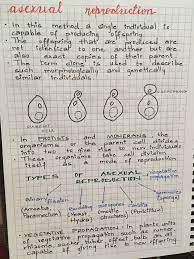 asexual reproduction
In this method a single individual is
capable of producing offspring.
The offsprings that are produced are
not identical to one another but are
also exact copies of their parent.
The term clone is used to describe
such morphologically and genetically
similar individuals
In PROTISTS and MONERANS, the
organism or the parent cell divides
into two to give rise to new individuals
These organisms take cell division
itself as mode of reproduction
TYPES OF ASEXUAL
REPRODUCTION
vegetative
binary fission
budding
gemmules
(Amoeba,
Paramecium)
(Yeast
(Penicillium)
(sponge)
VEGETATIVE PROPAGATION: In plants units
of vegetative propagation such runner
rhizome, sucker, tuber, offset, bulb are
capable of giving rise to new offspring